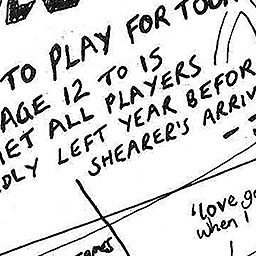 TO PLAY FOR TOU
AGE 12 TO 15
ET ALL PLAYERS
DLY LEFT YEAR BEFOR
SHEARER'S ARRIV
'love go
when I